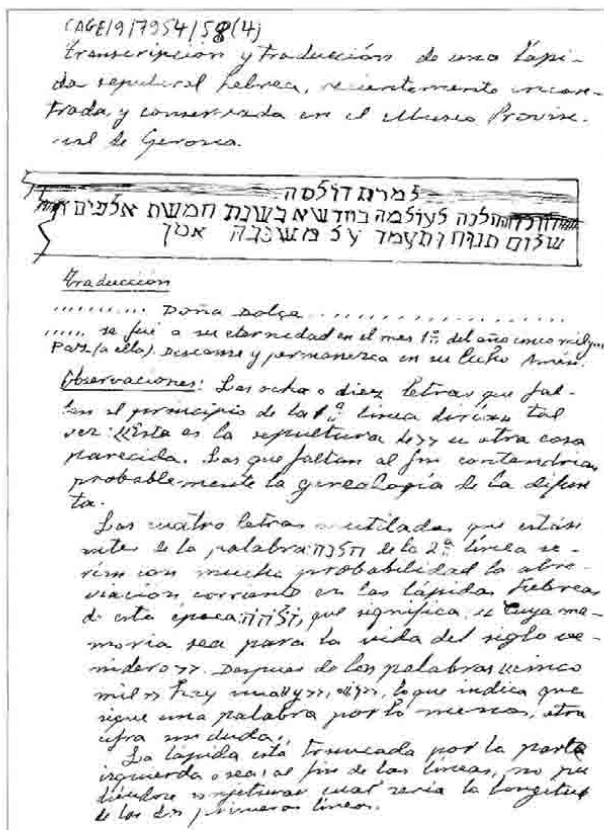 CAGE/9/7954/58(4)
Transcripción y traducción de una lápi-
da sepulcral hebrea, recientemente encon-
trada y conservada en el Museo Provin-
cial de Gerona.
למרת דולסה
הלכה לעולמה בחדש א בשנת חמשת אלפים
שלום תנוח ותעמד על משכבה אמן
Traducción
......... Doña Dolça ...................
..... se fué a su eternidad en el mes 1º del año cinco mil y...
Paz (a ella). Descanse y permanezca en su lecho Amén.
Observaciones: Las ocho o diez letras que fal-
tan al principio de la 1ª línea dirían tal
vez: «Esta es la sepultura de» u otra cosa
parecida. Las que faltan al fin contendrían
probablemente la genealogía de la difun-
ta.
Las cuatro letras mutiladas que están
antes de la palabra הלכה de la 2ª línea se-
rían con mucha probabilidad la abre-
viación corriente en las lápidas hebreas
de esta época: que significa «Cuya me-
moria sea para la vida del siglo ve-
nidero». Después de las palabras «cinco
mil» hay una «y», lo que indica que
sigue una palabra por lo menos, otra
cifra sin duda.
La lápida está truncada por la parte
izquierda o sea, al fin de las líneas, no pu-
diéndose conjeturar cual sería la longitud
de las dos primeras líneas.